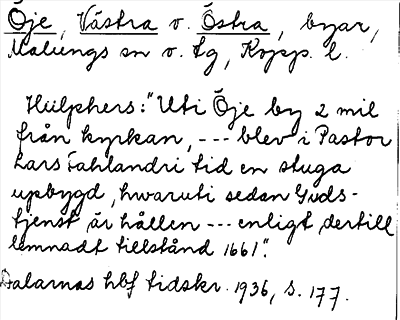 Öje, Västra o. Östra, byar,
Malungs sn o. tg, Kopp. l.
Hülphers: "Uti Öje by 2 mil
från kyrkan, --- blev i Pastor
Lars Fahlandri tid en stuga
upbygd, hwaruti sedan Guds-
tjenst är hållen --- enligt dertill
lemnadt tillstånd 1661".
Dalarnas hbf tidskr. 1936, s. 177.